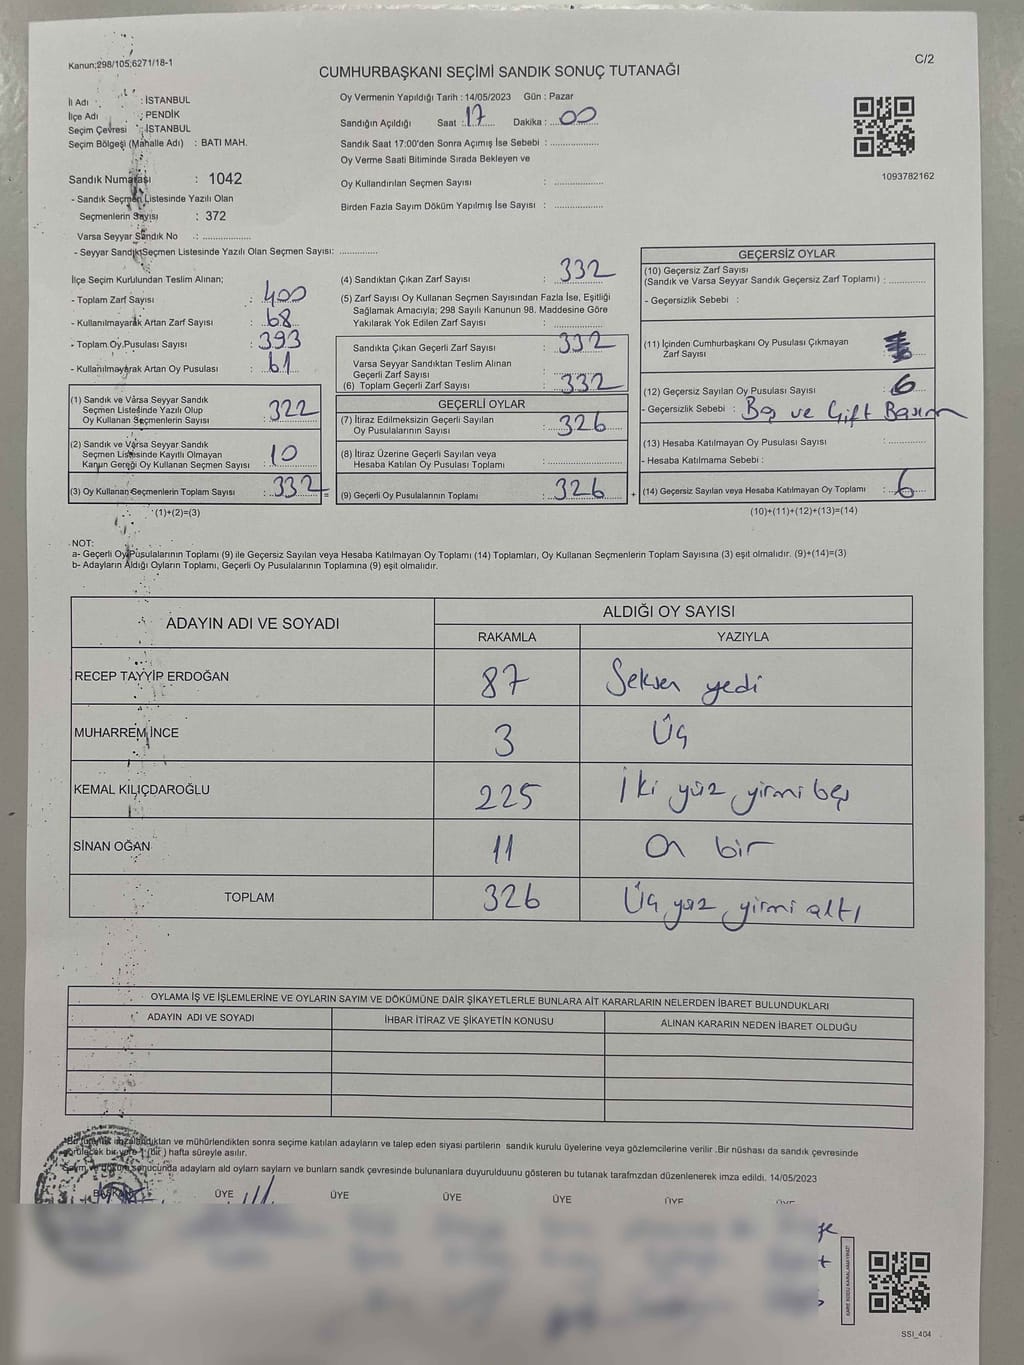 Kanun;298/105;6271/18-1
C/2
CUMHURBAŞKANI SEÇİMİ SANDIK SONUÇ TUTANAĞI
İl Adı : İSTANBUL
İlçe Adı : PENDİK
Seçim Çevresi : İSTANBUL
Seçim Bölgesi (Mahalle Adı) : BATI MAH.
Sandık Numarası : 1042
- Sandık Seçmen Listesinde Yazılı Olan
Seçmenlerin Sayısı : 372
Varsa Seyyar Sandık No : ..................
- Seyyar Sandık Seçmen Listesinde Yazılı Olan Seçmen Sayısı: ..............
Oy Vermenin Yapıldığı Tarih : 14/05/2023 Gün : Pazar
Sandığın Açıldığı Saat : 17 Dakika : 00
Sandık Saat 17:00'den Sonra Açımış İse Sebebi : ..................
Oy Verme Saati Bitiminde Sırada Bekleyen ve
Oy Kullandırılan Seçmen Sayısı : ..................
Birden Fazla Sayım Döküm Yapılmış İse Sayısı : ..................
1093782162
İlçe Seçim Kurulundan Teslim Alınan;
- Toplam Zarf Sayısı : 400
- Kullanılmayarak Artan Zarf Sayısı : 68
- Toplam Oy Pusulası Sayısı : 393
- Kullanılmayarak Artan Oy Pusulası : 61
(1) Sandık ve Varsa Seyyar Sandık
Seçmen Listesinde Yazılı Olup
Oy Kullanan Seçmenlerin Sayısı : 322
(2) Sandık ve Varsa Seyyar Sandık
Seçmen Listesinde Kayıtlı Olmayan
Kanun Gereği Oy Kullanan Seçmen Sayısı : 10
(3) Oy Kullanan Seçmenlerin Toplam Sayısı : 332 =
(1)+(2)=(3)
(4) Sandıktan Çıkan Zarf Sayısı : 332
(5) Zarf Sayısı Oy Kullanan Seçmen Sayısından Fazla İse, Eşitliği
Sağlamak Amacıyla; 298 Sayılı Kanunun 98. Maddesine Göre
Yakılarak Yok Edilen Zarf Sayısı : ..................
Sandıkta Çıkan Geçerli Zarf Sayısı : 332
Varsa Seyyar Sandıktan Teslim Alınan
Geçerli Zarf Sayısı : ..................
(6) Toplam Geçerli Zarf Sayısı : 332
GEÇERLİ OYLAR
(7) İtiraz Edilmeksizin Geçerli Sayılan
Oy Pusulalarının Sayısı : 326
(8) İtiraz Üzerine Geçerli Sayılan veya
Hesaba Katılan Oy Pusulası Toplamı : ..................
(9) Geçerli Oy Pusulalarının Toplamı : 326 +
GEÇERSİZ OYLAR
(10) Geçersiz Zarf Sayısı
(Sandık ve Varsa Seyyar Sandık Geçersiz Zarf Toplamı) : ..............
- Geçersizlik Sebebi :
(11) İçinden Cumhurbaşkanı Oy Pusulası Çıkmayan
Zarf Sayısı :
(12) Geçersiz Sayılan Oy Pusulası Sayısı : 6
- Geçersizlik Sebebi : Boş ve Çift Basım
(13) Hesaba Katılmayan Oy Pusulası Sayısı : ..............
- Hesaba Katılmama Sebebi :
(14) Geçersiz Sayılan veya Hesaba Katılmayan Oy Toplamı : 6
(10)+(11)+(12)+(13)=(14)
NOT:
a- Geçerli Oy Pusulalarının Toplamı (9) ile Geçersiz Sayılan veya Hesaba Katılmayan Oy Toplamı (14) Toplamları, Oy Kullanan Seçmenlerin Toplam Sayısına (3) eşit olmalıdır. (9)+(14)=(3)
b- Adayların Aldığı Oyların Toplamı, Geçerli Oy Pusulalarının Toplamına (9) eşit olmalıdır.
ADAYIN ADI VE SOYADI
ALDIĞI OY SAYISI
RAKAMLA YAZIYLA
RECEP TAYYİP ERDOĞAN 87 Seksen yedi
MUHARREM İNCE 3 Üç
KEMAL KILIÇDAROĞLU 225 İki yüz yirmi beş
SİNAN OĞAN 11 On bir
TOPLAM 326 Üç yüz yirmi altı
OYLAMA İŞ VE İŞLEMLERİNE VE OYLARIN SAYIM VE DÖKÜMÜNE DAİR ŞİKAYETLERLE BUNLARA AİT KARARLARIN NELERDEN İBARET BULUNDUKLARI
ADAYIN ADI VE SOYADI İHBAR İTİRAZ VE ŞİKAYETİN KONUSU ALINAN KARARIN NEDEN İBARET OLDUĞU
Bu tutanak imzalandıktan ve mühürlendikten sonra seçime katılan adayların ve talep eden siyasi partilerin sandık kurulu üyelerine veya gözlemcilerine verilir .Bir nüshası da sandık çevresinde
görülecek bir yere 1 (bir ) hafta süreyle asılır.
Sayım ve döküm sonucunda adayların ald oyların sayları ve bunların sandk çevresinde bulunanlara duyurulduunu gösteren bu tutanak tarafmzdan düzenlenerek imza edildi. 14/05/2023
BAŞKAN ÜYE ÜYE ÜYE ÜYE ÜYE ÜYE
KARE KODU KARALAMAYINIZ!
SSI_404